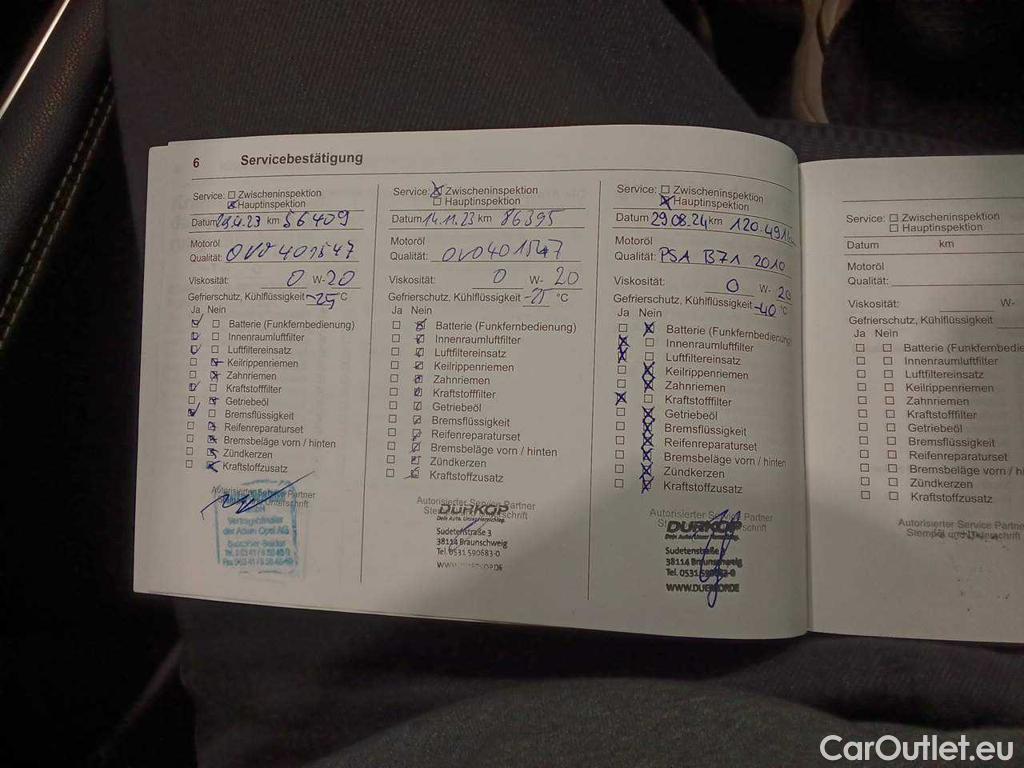 6 Servicebestätigung
Service: Zwischeninspektion
Hauptinspektion
Datum 18.4.23 km 56409
Motoröl
Qualität: OV0401547
Viskosität: 0 W- 20
Gefrierschutz, Kühlflüssigkeit -25 °C
Ja Nein
Batterie (Funkfernbedienung)
Innenraumluftfilter
Luftfiltereinsatz
Keilrippenriemen
Zahnriemen
Kraftstofffilter
Getriebeöl
Bremsflüssigkeit
Reifenreparaturset
Bremsbeläge vorn / hinten
Zündkerzen
Kraftstoffzusatz
Autorisierter Service Partner
Vertragshändler
der Adam Opel AG
Service: Zwischeninspektion
Hauptinspektion
Datum 14.11.23 km 86395
Motoröl
Qualität: OV0401547
Viskosität: 0 W- 20
Gefrierschutz, Kühlflüssigkeit -25 °C
Ja Nein
Batterie (Funkfernbedienung)
Innenraumluftfilter
Luftfiltereinsatz
Keilrippenriemen
Zahnriemen
Kraftstofffilter
Getriebeöl
Bremsflüssigkeit
Reifenreparaturset
Bremsbeläge vorn / hinten
Zündkerzen
Kraftstoffzusatz
Autorisierter Service Partner
DÜRKOP
Dein Auto. Unser Herzschlag.
Sudetenstraße 3
38114 Braunschweig
Tel. 0531 590683-0
Service: Zwischeninspektion
Hauptinspektion
Datum 29.08.24 km 120.491 km
Motoröl
Qualität: PSA B71 2010
Viskosität: 0 W- 20
Gefrierschutz, Kühlflüssigkeit -40 °C
Ja Nein
Batterie (Funkfernbedienung)
Innenraumluftfilter
Luftfiltereinsatz
Keilrippenriemen
Zahnriemen
Kraftstofffilter
Getriebeöl
Bremsflüssigkeit
Reifenreparaturset
Bremsbeläge vorn / hinten
Zündkerzen
Kraftstoffzusatz
Autorisierter Service Partner
DÜRKOP
Dein Auto. Unser Herzschlag.
Sudetenstraße
38114 Braunschweig
Tel. 0531 590683-0
WWW.DUERKOP.DE
Service: Zwischeninspektion
Hauptinspektion
Datum km
Motoröl
Qualität:
Viskosität: W-
Gefrierschutz, Kühlflüssigkeit
Ja Nein
Batterie (Funkfernbedie
Innenraumluftfilter
Luftfiltereinsatz
Keilrippenriemen
Zahnriemen
Kraftstofffilter
Getriebeöl
Bremsflüssigkeit
Reifenreparaturset
Bremsbeläge vorn / h
Zündkerzen
Kraftstoffzusatz
Autorisierter Service Partner
Stempel und Unterschrift
CarOutlet.eu